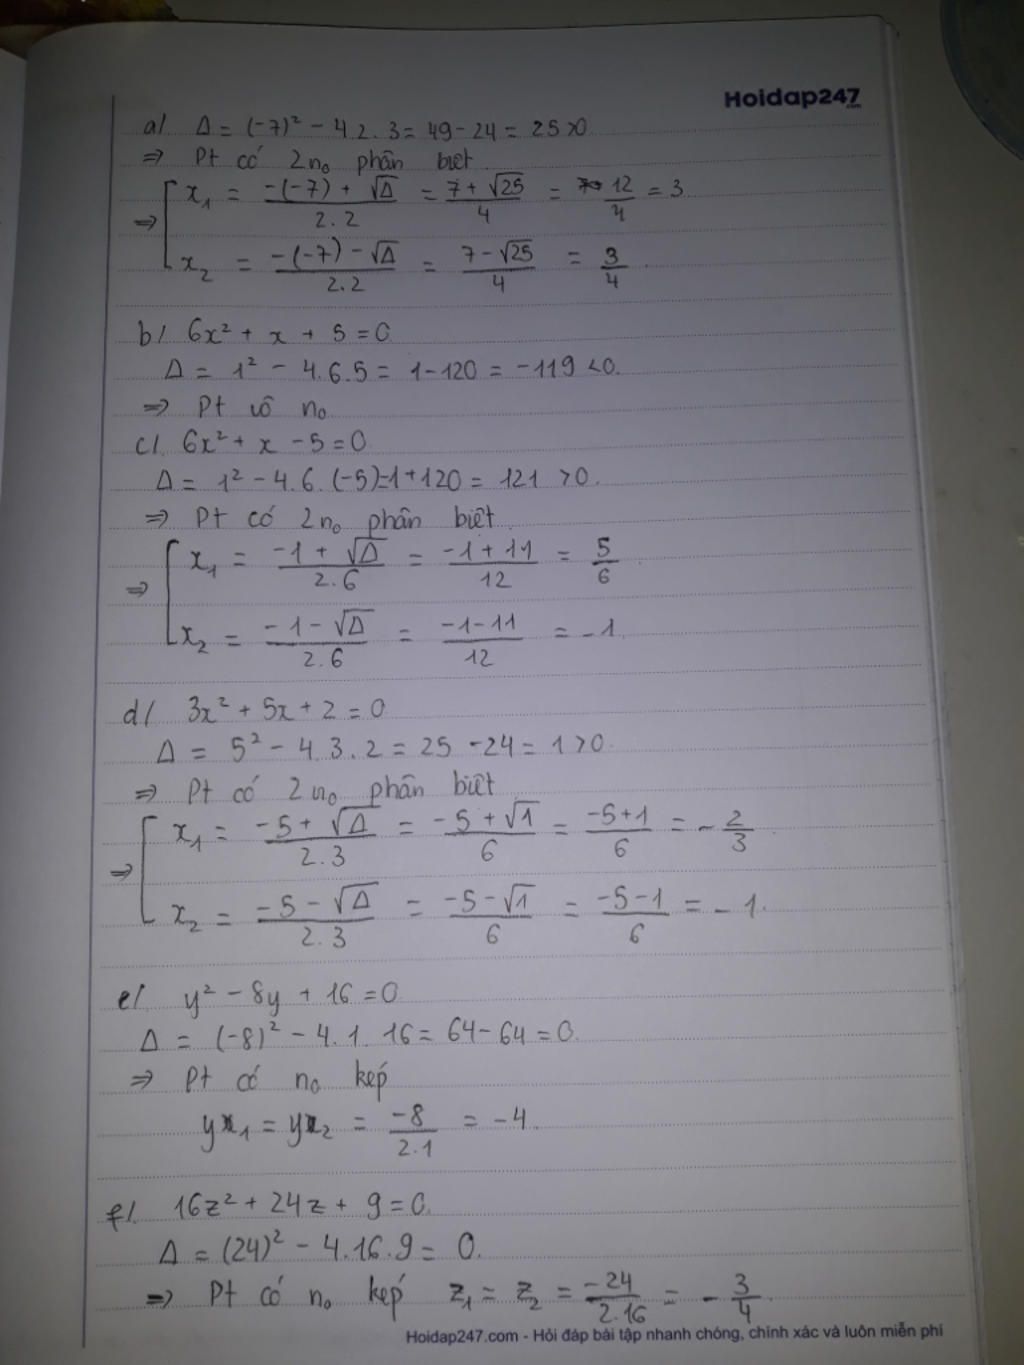 Hoidap247
.com
a) Δ = (-7)² - 4.2.3 = 49 - 24 = 25 > 0
=> Pt có 2 n₀ phân biệt
=> [ x₁ = (-(-7) + √Δ)/(2.2) = (7 + √25)/4 = 12/4 = 3
x₂ = (-(-7) - √Δ)/(2.2) = (7 - √25)/4 = 3/4.
b) 6x² + x + 5 = 0
Δ = 1² - 4.6.5 = 1 - 120 = -119 < 0.
=> Pt vô n₀
c) 6x² + x - 5 = 0
Δ = 1² - 4.6.(-5) = 1 + 120 = 121 > 0.
=> Pt có 2 n₀ phân biệt.
=> [ x₁ = (-1 + √Δ)/(2.6) = (-1 + 11)/12 = 5/6
x₂ = (-1 - √Δ)/(2.6) = (-1 - 11)/12 = -1.
d) 3x² + 5x + 2 = 0
Δ = 5² - 4.3.2 = 25 - 24 = 1 > 0.
=> Pt có 2 n₀ phân biệt
=> [ x₁ = (-5 + √Δ)/(2.3) = (-5 + √1)/6 = (-5 + 1)/6 = -2/3
x₂ = (-5 - √Δ)/(2.3) = (-5 - √1)/6 = (-5 - 1)/6 = -1.
e) y² - 8y + 16 = 0
Δ = (-8)² - 4.1.16 = 64 - 64 = 0.
=> Pt có n₀ kép
y₁ = y₂ = -8/(2.1) = -4.
f) 16z² + 24z + 9 = 0.
Δ = (24)² - 4.16.9 = 0.
=> Pt có n₀ kép z₁ = z₂ = -24/(2.16) = -3/4.
Hoidap247.com - Hỏi đáp bài tập nhanh chóng, chính xác và luôn miễn phí